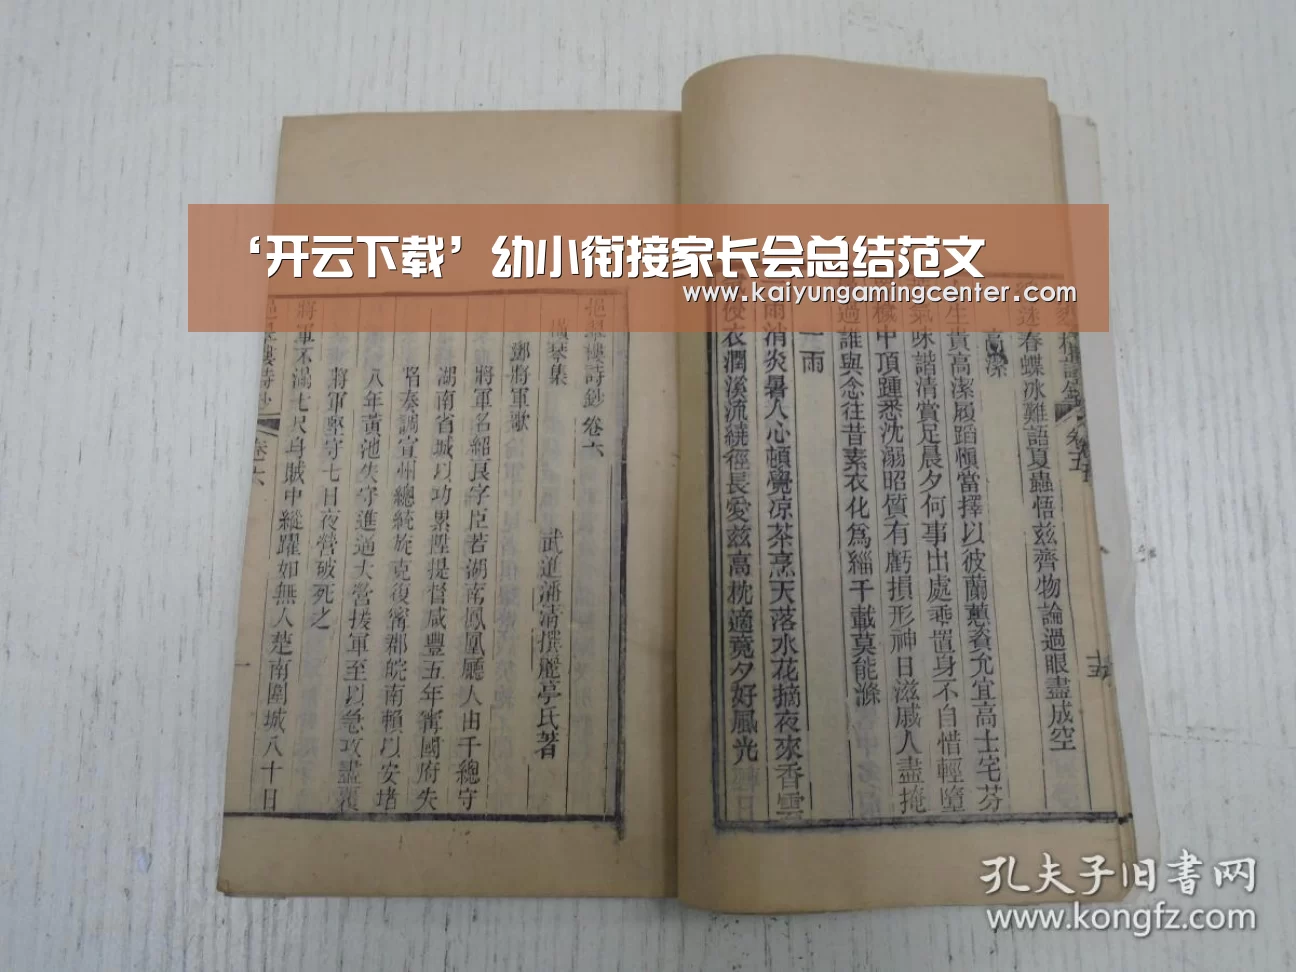 ‘开云下载’幼小衔接家长会总结范文
www.kaiyungamingcenter.com
迷春蝶冰難語夏蟲悟兹齊物論過眼盡成空
高潔
生貴高潔履蹈愼當擇以彼蘭蕙資允宜高士宅芬
氣味諧清賞足晨夕何事出處乖置身不自惜輕墮
中頂踵悉沈溺昭質有虧損形神日滋戚人盡掩
過誰與念往昔素衣化爲緇千載莫能滌
雨
雨消炎暑人心頓覺凉茶烹天落水花摘夜來香雲
侵衣潤溪流繞徑長愛兹高枕適竟夕好風光
卷五
詩鈔卷六
琴集
武進潘清撰麗亭氏著
鄧將軍歌
將軍名紹良字臣若湖南鳳凰廳人由千總守
湖南省城以功累陞提督咸豐五年甯國府失
奏調宣州總統旋克復甯郡皖南賴以安堵
八年黃池失守進逼大營援軍至以急攻盡覆
將軍堅守七日夜營破死之
將軍不滿七尺身賊中縱躍如無人楚南圍城八十日
卷六
一
孔夫子旧书网
www.kongfz.com